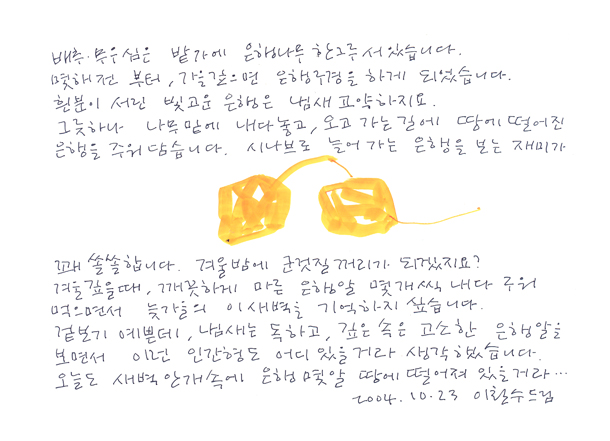 배추·무우 심은 밭가에 은행나무 한그루 서있습니다.
몇해전 부터, 가을걷으면 은행구경을 하게 되었습니다.
흰분이 서린 빛고운 은행은 냄새 고약하지요.
그릇하나 나무밑에 내다놓고, 오고 가는길에 땅에 떨어진
은행을 주워 담습니다. 시나브로 늘어 가는 은행을 보는 재미가
꽤 쏠쏠합니다. 겨울밤에 군것질꺼리가 되겠지요?
겨울깊을때, 깨끗하게 마른 은행알 몇개씩 내다 구워
먹으면서 늦가을의 이새벽을 기억하지 싶습니다.
겉보기 예쁜데, 냄새는 독하고, 깊은 속은 고소한 은행알을
보면서 이런 인간형도 어디 있을거라 생각했습니다.
오늘도 새벽 안개속에 은행 몇알 땅에 떨어져 있을거라…
2004.10.23 이철수드림